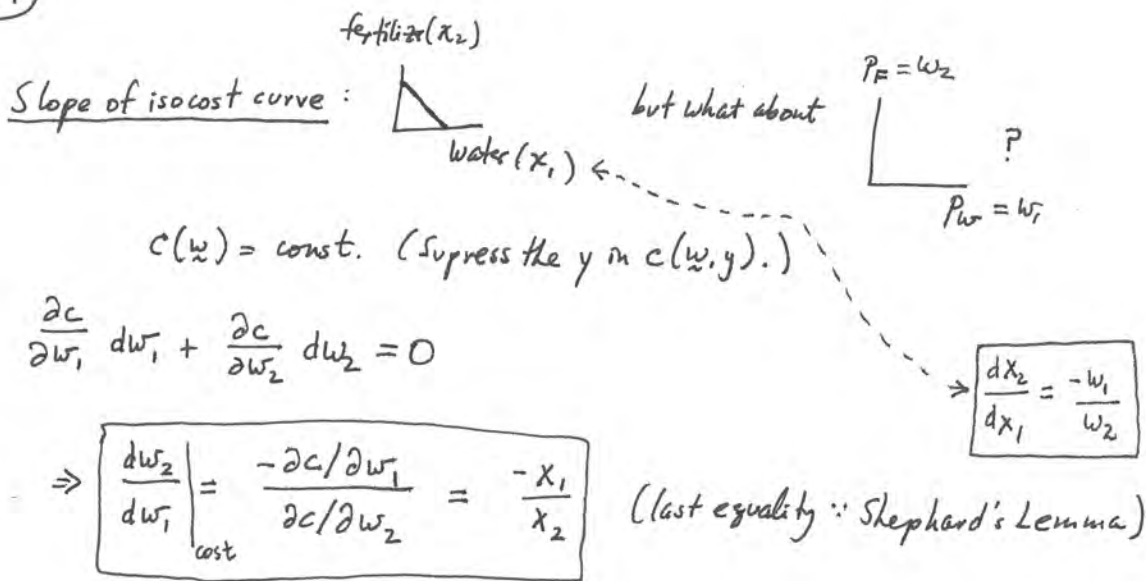 fertilizer (x₂)
Slope of isocost curve :
water (x₁)
but what about
P_F = w₂
?
P_w = w₁
C(w̰) = const. (Supress the y in c(w̰, y).)
∂c/∂w₁ dw₁ + ∂c/∂w₂ dw₂ = 0
dx₂/dx₁ = -w₁/w₂
⇒ dw₂/dw₁ |cost = -∂c/∂w₁ / ∂c/∂w₂ = -x₁/x₂ (last equality ∵ Shephard's Lemma)